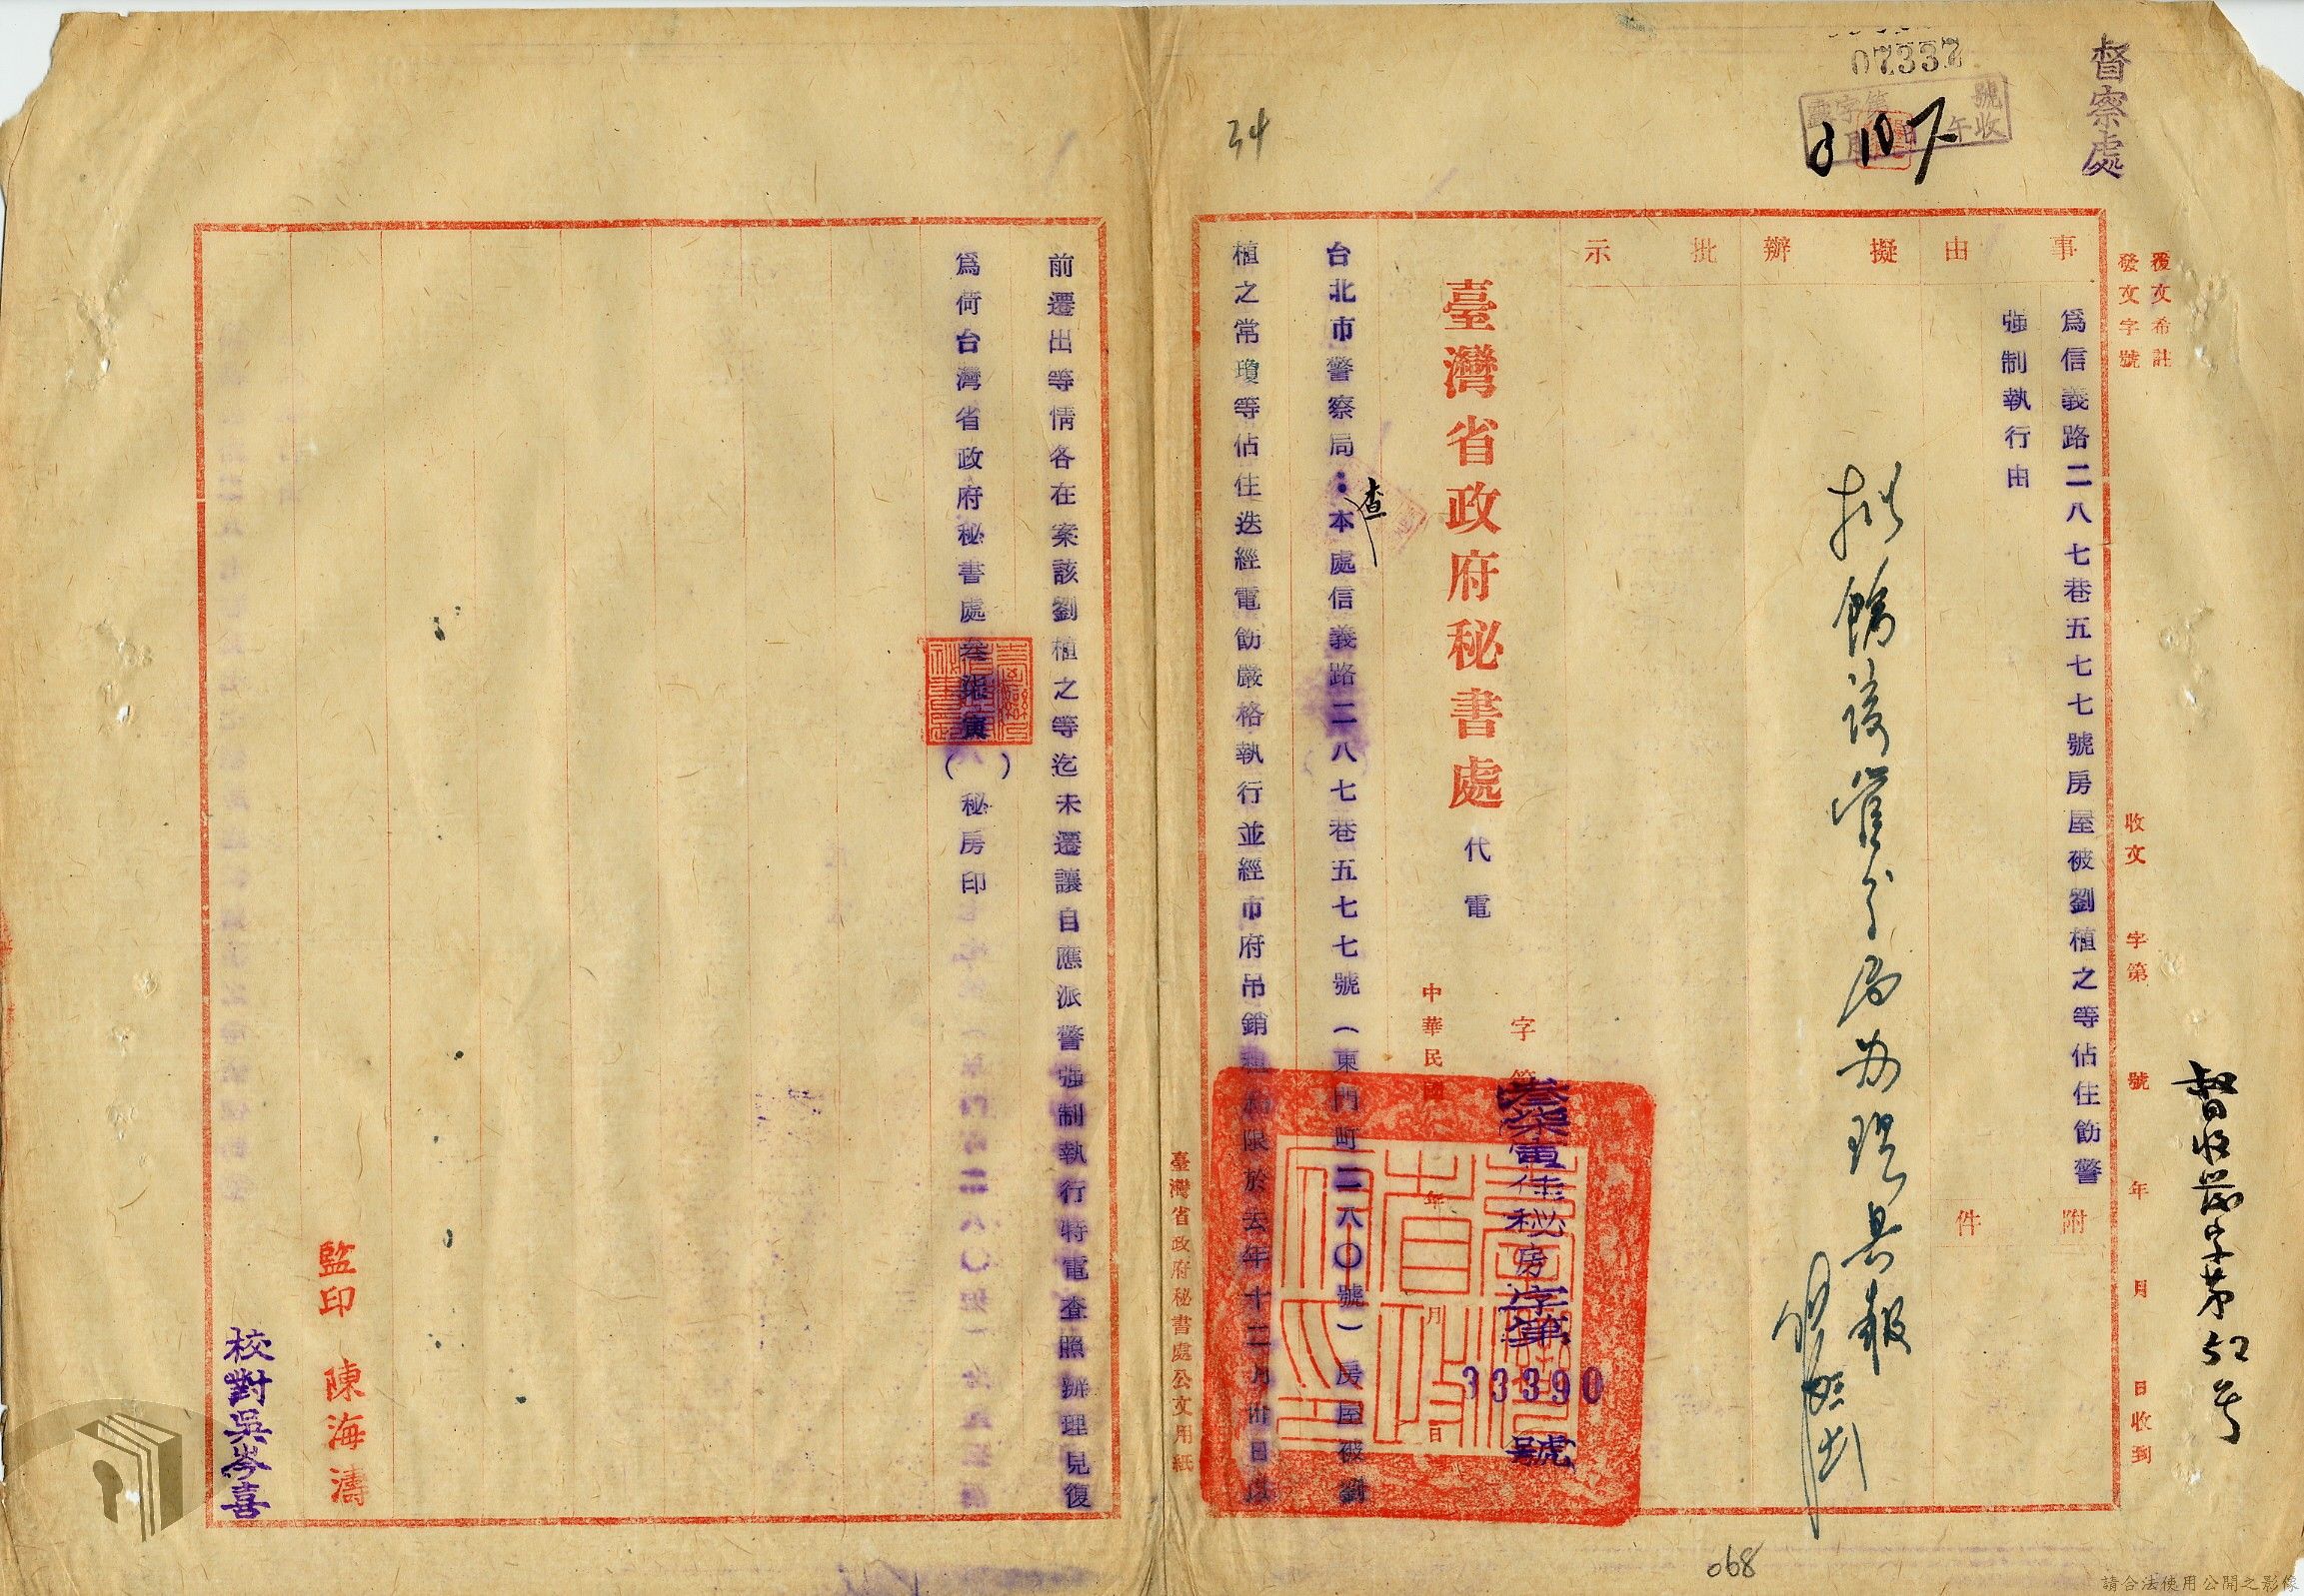 督察處
07337
字第 號
午收
3 10 7
督收崗字第52号
覆文希註
發文字號
收文 字第 號 年 月 日收到
事由
擬辦
批示
附件
為信義路二八七巷五七七號房屋被劉植之等佔住飭警
強制執行由
拟飭該管分局办理具報
臺灣省政府秘書處代電
字第
叁柒寅佳秘房字第33390號
中華民國 年 月 日
台北市警察局:查本處信義路二八七巷五七七號(東門町二八〇號)房屋被劉
植之常瓊等佔住迭經電飭嚴格執行並經市府吊銷 限於去年十二月卅日以
臺灣省政府秘書處公文用紙
34
前遷出等情各在案該劉植之等迄未遷讓自應派警強制執行特電查照辦理見復
為荷台灣省政府秘書處叁柒寅( )秘房印
監印 陳海濤
校對吳岑喜
068
請合法使用公開之影像